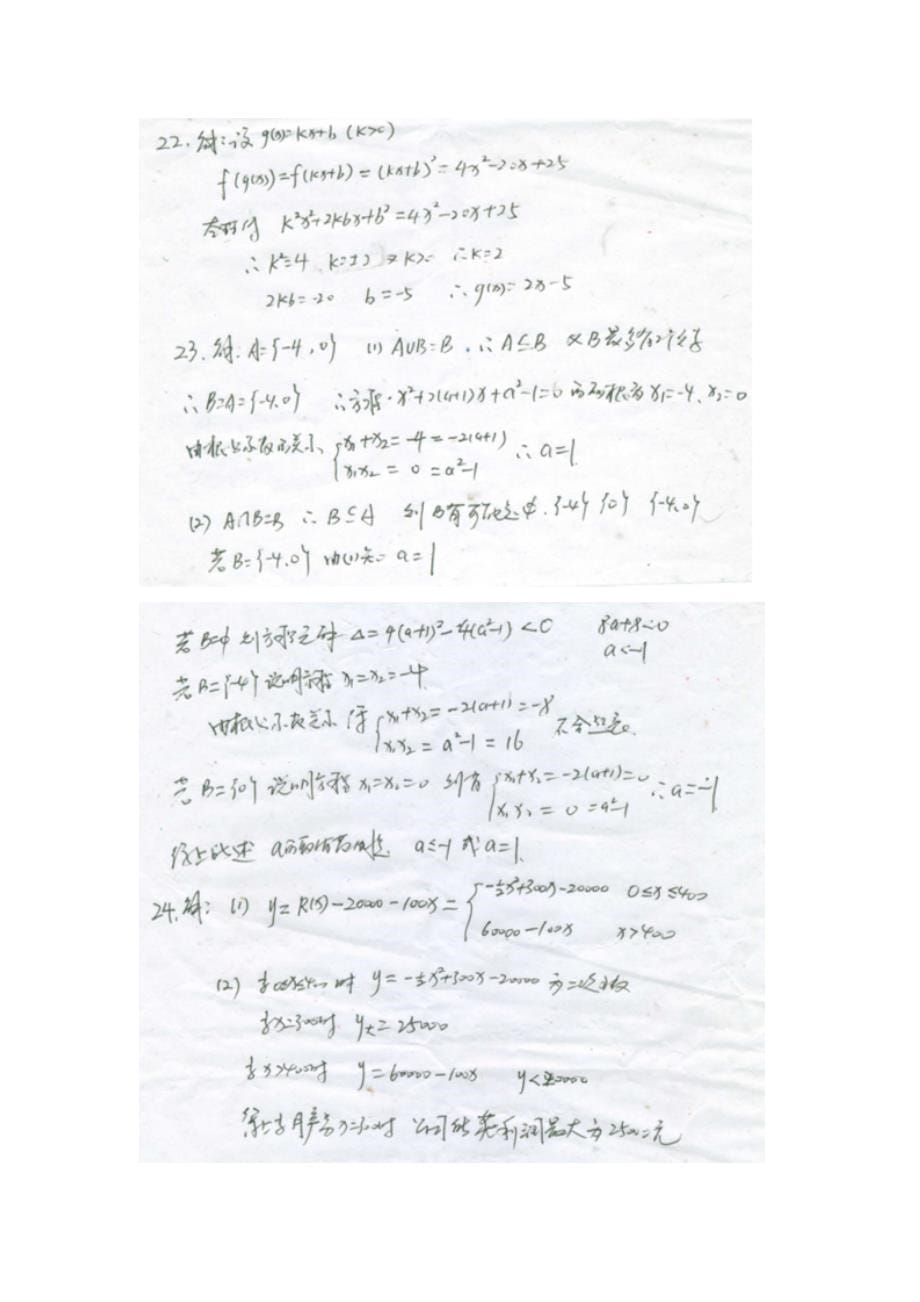 22. 解：设 g(x)=kx+b (k>0)
f(g(x))=f(kx+b)=(kx+b)²=4x²-20x+25
k²x²+2kbx+b²=4x²-20x+25
∴ k²=4 k=±2 又k>0 ∴k=2
2kb=-20 b=-5 ∴ g(x)=2x-5
23. 解: A={-4,0} (1) A∪B=B ∴ A⊆B 又B最多有2个元素
∴ B=A={-4,0} ∴方程 x²+2(a+1)x+a²-1=0 的两根为 x₁=-4、x₂=0
由根与系数的关系 { x₁+x₂=-4=-2(a+1)
x₁x₂=0=a²-1 ∴ a=1
(2) A∩B=B ∴ B⊆A 则B有可能是φ、{-4} {0} {-4,0}
若B={-4,0} 由(1)知 a=1
若B=φ 则方程无解 Δ=4(a+1)²-4(a²-1)<0 8a+8<0
a<-1
若B={-4} 说明方程 x₁=x₂=-4
由根与系数关系 得 { x₁+x₂=-2(a+1)=-8
x₁x₂=a²-1=16 不合题意。
若B={0} 说明方程 x₁=x₂=0 则有 { x₁+x₂=-2(a+1)=0
x₁x₂=0=a²-1 ∴ a=-1
综上所述 a的取值范围是 a≤-1 或 a=1
24. 解: (1) y=R(x)-20000-100x= { -½x²+300x-20000 0≤x≤400
60000-100x x>400
(2) 当0≤x≤400时 y=-½x²+300x-20000 为二次函数
当x=300时 y大=25000
当x>400时 y=60000-100x y<20000
综上当月产量为300时 公司所获利润最大为25000元